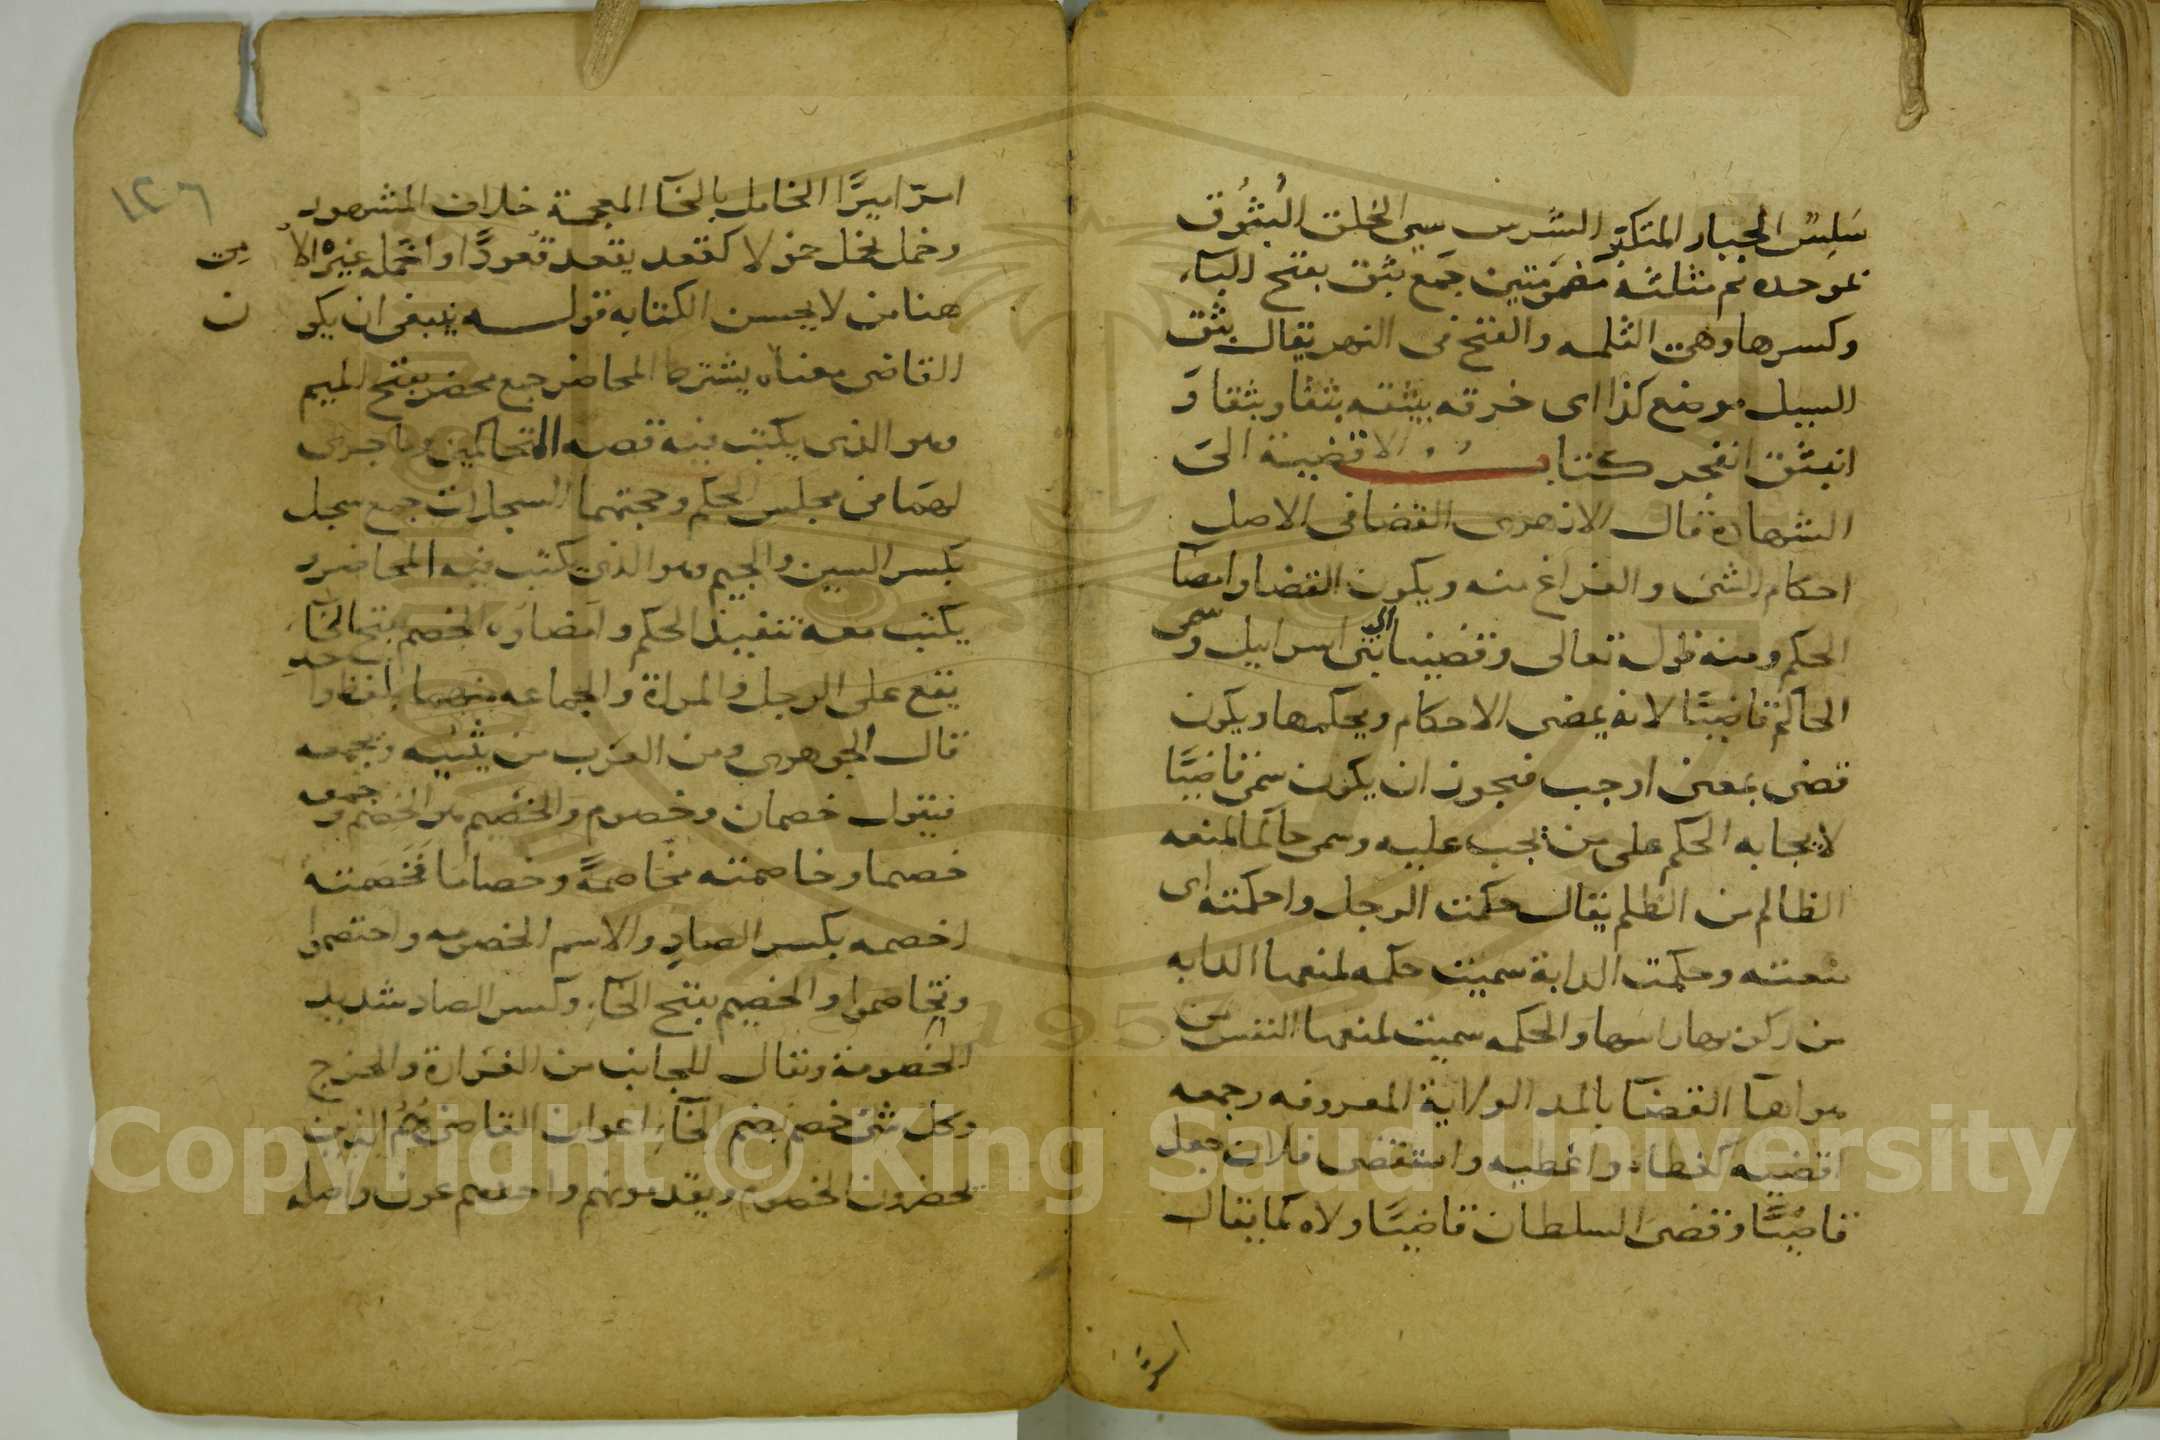 سَلِسٌ الجبار المتكبر الشَرِس سيى الخلق البُثُوق
بموحده ثم مثلثة مضمومتين جمع بثق بفتح البآء
وكسرها وهى الثلمه والفتح فى النهر يقال بثق
السيل موضع كذا اى خرقه يبثقه بثقا وبثقا وَ
انبثق انفجر كتاب الاقضية الى
الشهادة قال الازهرى القضا فى الاصل
احكام الشى والفراغ منه ويكون القضا وامضآ
الحكم ومنه قوله تعالى وقضينا الى بنى اسرايل وسمى
الحاكم قاضيًا لانه يمضى الاحكام ويحكمها ويكون
قضى بمعنى اوجب فيجوز ان يكون سمى قاضيًا
لايجابه الحكم على من يجب عليه وسمى حاكما لمنعه
الظالم من الظلم يقال حكمت الرجل واحكمته اى
منعته وحكمت الدابة سميت حكمه لمنعها الدابه
من ركوبها راسها والحكمه سميت لمنعها النفس من
هواها القضآ بالمد الولاية المعروفه وجمعه
اقضيه كغطاء واغطيه واستقضى فلان جعل
قاضيًا وقضى السلطان قاضيًا ولاه كما يقال
امرّ اميرًا الخامل بالخآ المعجمة خلاف المشهور
وخمل يخمل خمولا كقعد يقعد قعودًا واخمله غيره الامين
هنا من لا يحسن الكتابه قوله ينبغى ان يكون
القاضى معناه يشترط المحاضر جمع محضر بفتح الميم
وهو الذى يكتب فيه قصه المتحاكمين وما جرى
لهما فى مجلس الحكم وحجتهما السجلات جمع سجل
بكسر السين والجيم وهو الذى يكتب فيه المحاضر و
يكتب معه تنفيذ الحكم وامضاوه الخصم بفتح الخآ
يقع على الرجل والمراة والجماعه منهما بلفظ واحد
قال الجوهرى ومن العرب من يثنيه ويجمعه
فيقول خصمان وخصوم والخصيم هو الخصم وجمعه
خصما وخاصمته مخاصمةً وخصاما فخصمته
اخصمه بكسر الصاد والاسم الخصومه واختصموا
وتخاصموا والخصيم بفتح الخآء وكسر الصاد شديد
الخصومة ويقال للجانب من الغرارة والخرج
وكل شى خصم بضم الخآء اعوان القاضى هُمُ الذين
يحضرون الخصوم ويقدمونهم واحدهم عون واصله
١٢٦
1957
Copyright © King Saud University